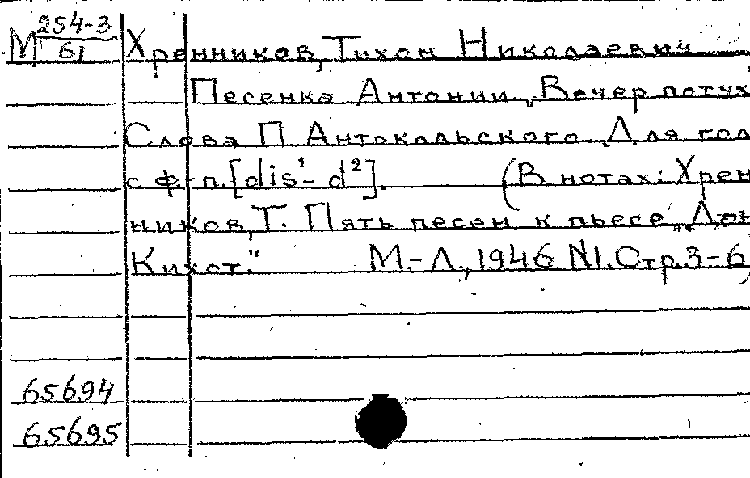 М 254-3/61 Хренников, Тихон Николаевич
Песенка Антонии „Вечер потух
Слова П. Антокольского. Для гол
с ф.-п. [dis¹- d²]. (В нотах: Хрен
ников, Т. Пять песен к пьесе „Дон
Кихот." М.-Л., 1946 №1. Стр. 3-6,
65694
65695